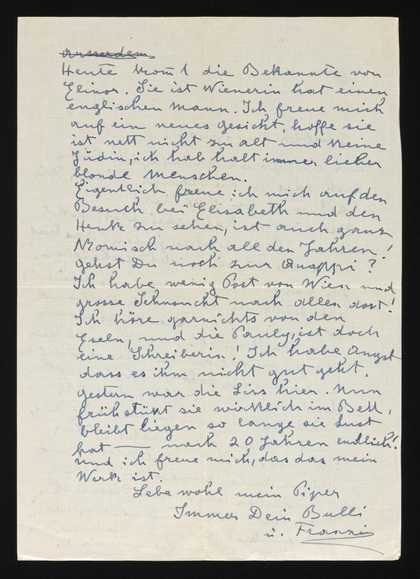 ausserdem
Heute kommt die Bekannte von
Elinor. Sie ist Wienerin hat einen
englischen Mann. Ich freue mich
auf ein neues Gesicht, hoffe sie
ist nett nicht zu alt und keine
Jüdin, ich hab halt immer lieber
blonde Menschen.
Eigentlich freue ich mich auf den
Besuch bei Elisabeth und den
Henk zu sehen, ist auch ganz
komisch nach all den Jahren!
gehst Du noch zur Quappi?
Ich habe wenig Post von Wien und
grosse Sehnsucht nach allen dort!
Ich höre garnichts von den
Eseln, und die Pauly, ist doch
eine Schreiberin. Ich habe Angst
dass es ihm nicht gut geht,
gestern war die Liss hier. Nun
frühstükt sie wirklich im Bett,
bleibt liegen so lange sie Lust
hat — nach 20 Jahren endlich!
und ich freue mich, das das mein
Werk ist.
Lebe wohl mein Piper
Immer Dein Bulli
u. Franzi